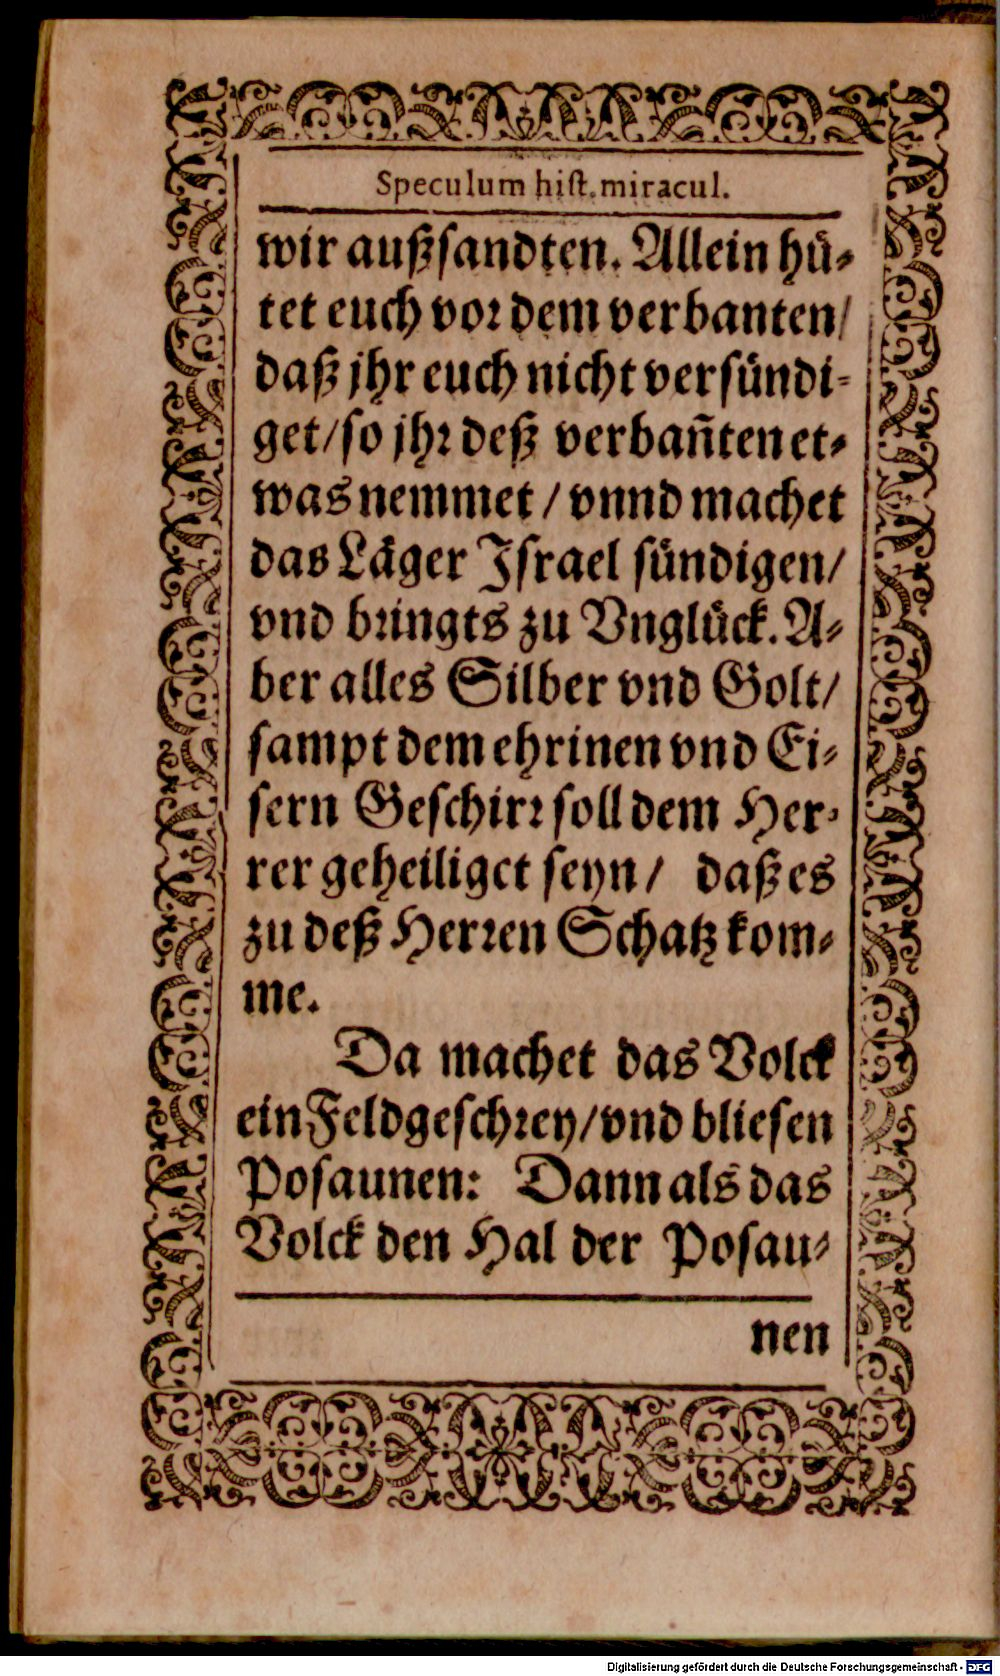 Speculum hist. miracul.
wir außsandten. Allein hü-
tet euch vor dem verbanten/
daß jhr euch nicht versündi-
get/so jhr deß verbañten et-
was nemmet / vnnd machet
das Läger Israel sündigen/
vnd bringts zu Vnglück. A-
ber alles Silber vnd Golt/
sampt dem ehrinen vnd Ei-
sern Geschirr soll dem Her-
rer geheiliget seyn/ daß es
zu deß Herren Schatz kom-
me.
Da machet das Volck
ein Feldgeschrey/vnd bliesen
Posaunen: Dann als das
Volck den Hal der Posau-
nen
Digitalisierung gefördert durch die Deutsche Forschungsgemeinschaft - DFG